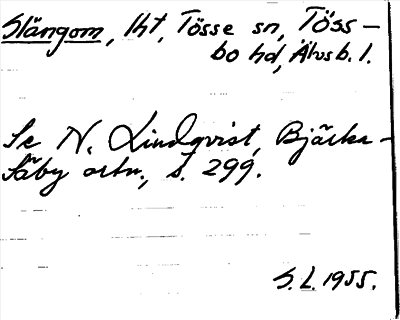 Slängom, lht, Tösse sn, Töss-
bo hd, Älvsb. l.
Se N. Lindqvist, Bjärka-
Säby ortn., s. 299.
S.L. 1955.